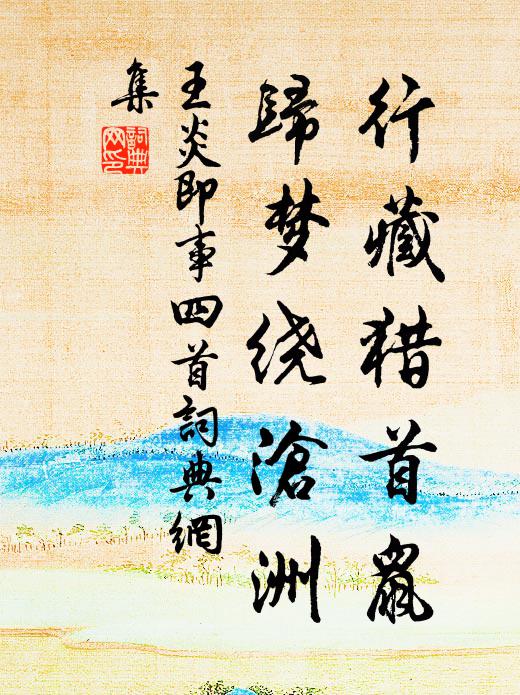 行藏猎首鼠
歸梦绕滄洲
王炎即事四首詞典網
集
詞典網印